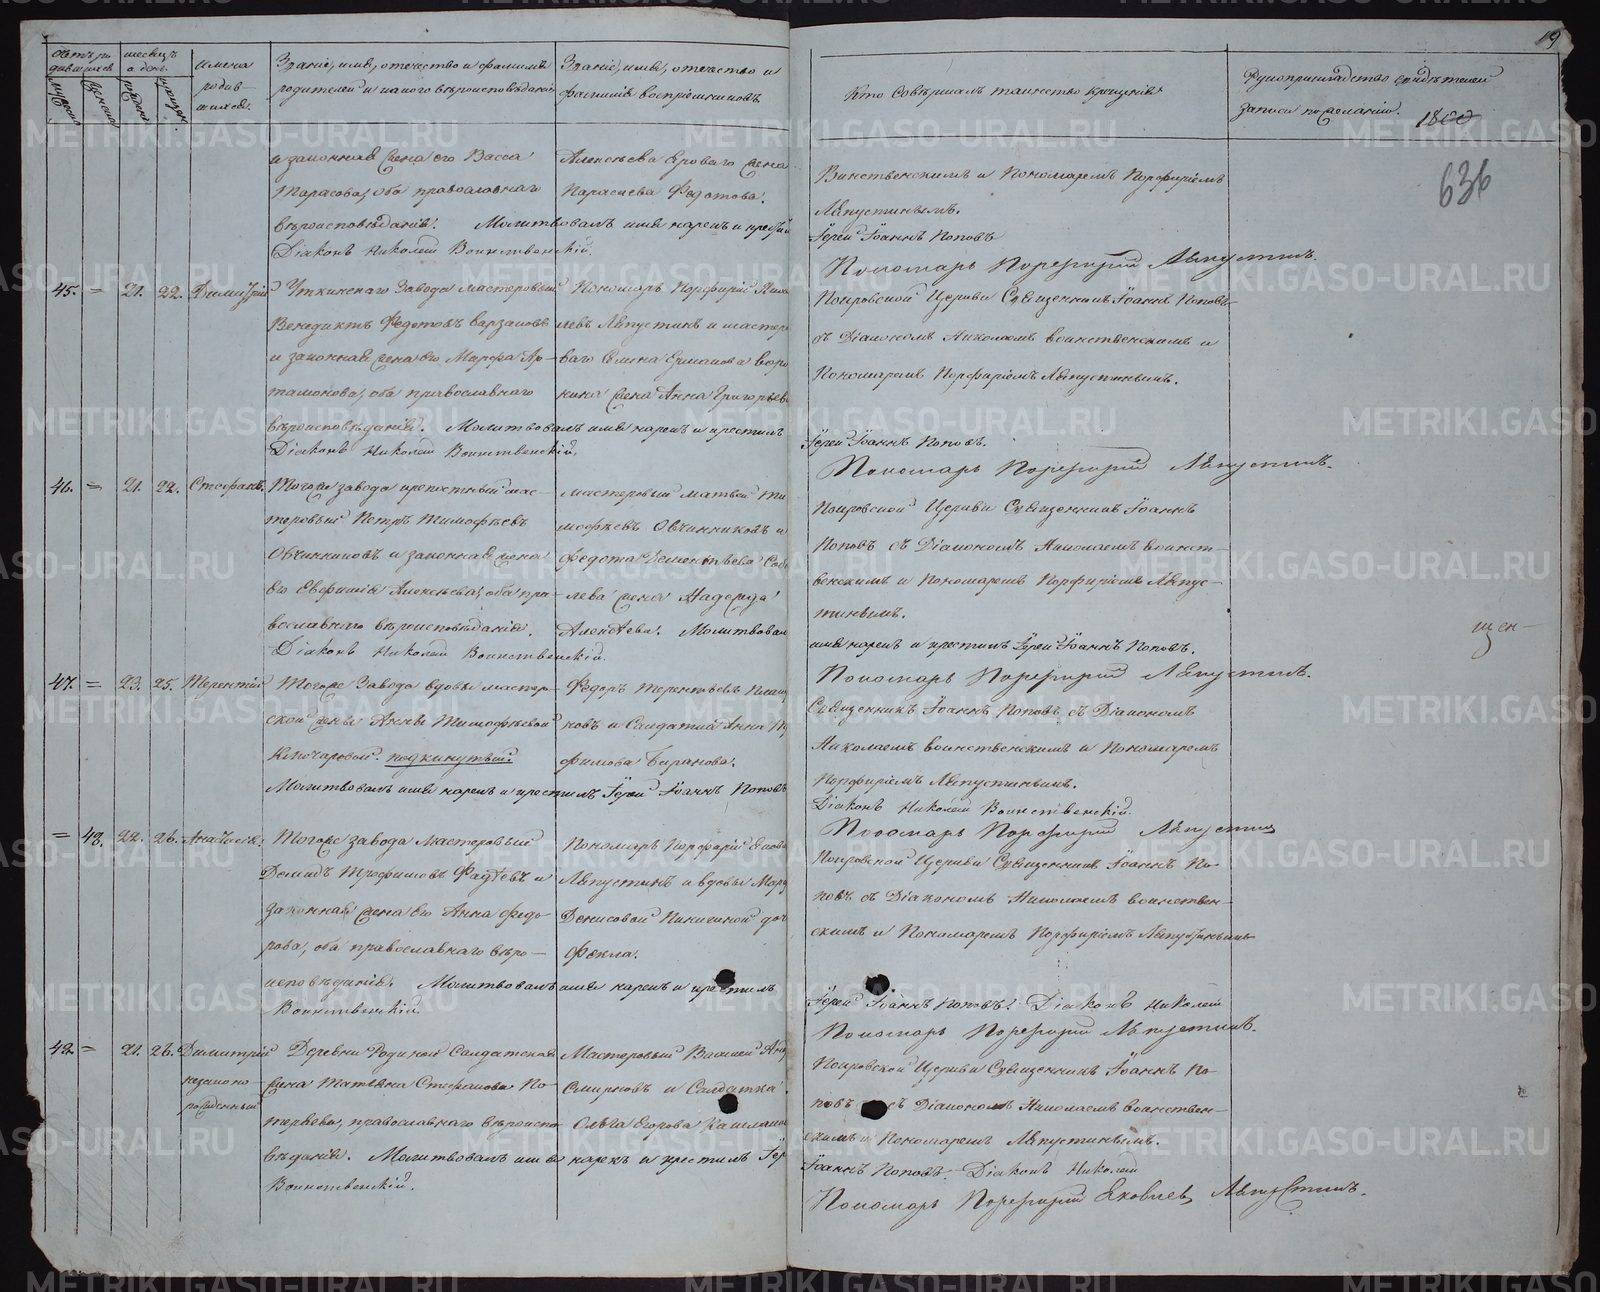 19
1800
636
Счетъ ро-
дившихся
мужеска
женска
месяцъ
и день.
рожден.
крещен.
имена
родив-
шихся.
Званіе, имя, отечество и фамилія
родителей и какого вѣроисповѣданія
Званіе, имя, отечество и
фамилія воспріемниковъ
Кто совершалъ таинство крещенія
Рукоприкладство свидѣтелей
записи по желанію.
и законная жена его Васса
Тарасова, оба православнаго
вѣроисповѣданія. Молитвовалъ имя нарекъ и крестилъ
Діаконъ Николай Воинственскій.
Алексѣева жена
Параскева Федотова.
Воинственскимъ и Пономаремъ Порфиріемъ
Ляпустинымъ.
Іерей Іоаннъ Поповъ
Пономарь Порфирій Ляпустинъ.
45. = 21. 22. Димитрій
Уткинскаго Завода мастеровый
Венедиктъ Федотовъ Варзаковъ
и законная жена его Марфа Ар-
тамонова, оба православнаго
вѣроисповѣданія. Молитвовалъ имя нарекъ и крестилъ
Діаконъ Николай Воинственскій.
Пономарь Порфирій Яков
левъ Ляпустинъ и мастеро
ваго жена Анна Григорьева
Покровской Церкви Священникъ Іоаннъ Поповъ
съ Діакономъ Николаемъ Воинственскимъ и
Пономаремъ Порфиріемъ Ляпустинымъ.
Іерей Іоаннъ Поповъ.
Пономарь Порфирій Ляпустинъ.
46. = 21. 22. Стефанъ.
Тогоже завода крепостный мас-
теровый Петръ Тимофѣевъ
Овчинниковъ и законная жена
его Евфимія Алексѣева, оба пра-
вославнаго вѣроисповѣданія.
Діаконъ Николай Воинственскій.
Мастеровый Матвѣй Ти
мофѣевъ Овчинниковъ и
Федота Дементьева Собо
лева жена Надежда
Алексѣева. Молитвовалъ
Покровской Церкви Священникъ Іоаннъ
Поповъ съ Діакономъ Николаемъ Воинст-
венскимъ и Пономаремъ Порфиріемъ Ляпус-
тинымъ.
имя нарекъ и крестилъ Іерей Іоаннъ Поповъ.
Пономарь Порфирій Ляпустинъ.
47. = 23. 25. Терентій
Тогоже Завода вдовы мастер-
ской жены Анны Тимофѣевой
Ключаревой подкинутый
Молитвовалъ имя нарекъ и крестилъ Іерей Іоаннъ Поповъ
Федоръ Терентьевъ
новъ и Салдатка Анна Тр
фимова Баранова.
Священникъ Іоаннъ Поповъ съ Діакономъ
Николаемъ Воинственскимъ и Пономаремъ
Порфиріемъ Ляпустинымъ.
Діаконъ Николай Воинственскій.
Пономарь Порфирій Ляпустинъ
= 48. 22. 26.
Тогоже завода Мастеровый
Демидъ Трофимовъ Фадѣевъ и
законная жена его Анна Федо-
рова, оба православнаго вѣро-
исповѣданія. Молитвовалъ имя нарекъ и крестилъ
Воинственскій.
Пономарь Порфирій Яковл
Ляпустинъ и вдовы Мар
Денисовой Никигиной доч
Фекла.
Покровской Церкви Священникъ Іоаннъ По-
повъ съ Діакономъ Николаемъ Воинствен-
скимъ и Пономаремъ Порфиріемъ Ляпустинымъ
Іерей Іоаннъ Поповъ. Діаконъ Николай
Пономарь Порфирій Ляпустинъ.
21. 26. Димитрій
незаконо
рожденный
Деревни Родиной Салдатская
жена Татьяна Стефанова По-
теряева, православнаго вѣроиспо-
вѣданія. Молитвовалъ имя нарекъ и крестилъ Іер
Воинственскій.
Мастеровый Василій Анд
Смирновъ и Салдатка
Ольга Егорова
Покровской Церкви Священникъ Іоаннъ По-
повъ съ Діакономъ Николаемъ Воинствен-
скимъ и Пономаремъ Ляпустинымъ.
Іоаннъ Поповъ. Діаконъ Николай
Пономарь Порфирій Яковлевъ Ляпустинъ.
METRIKI.GASO-URAL.RU